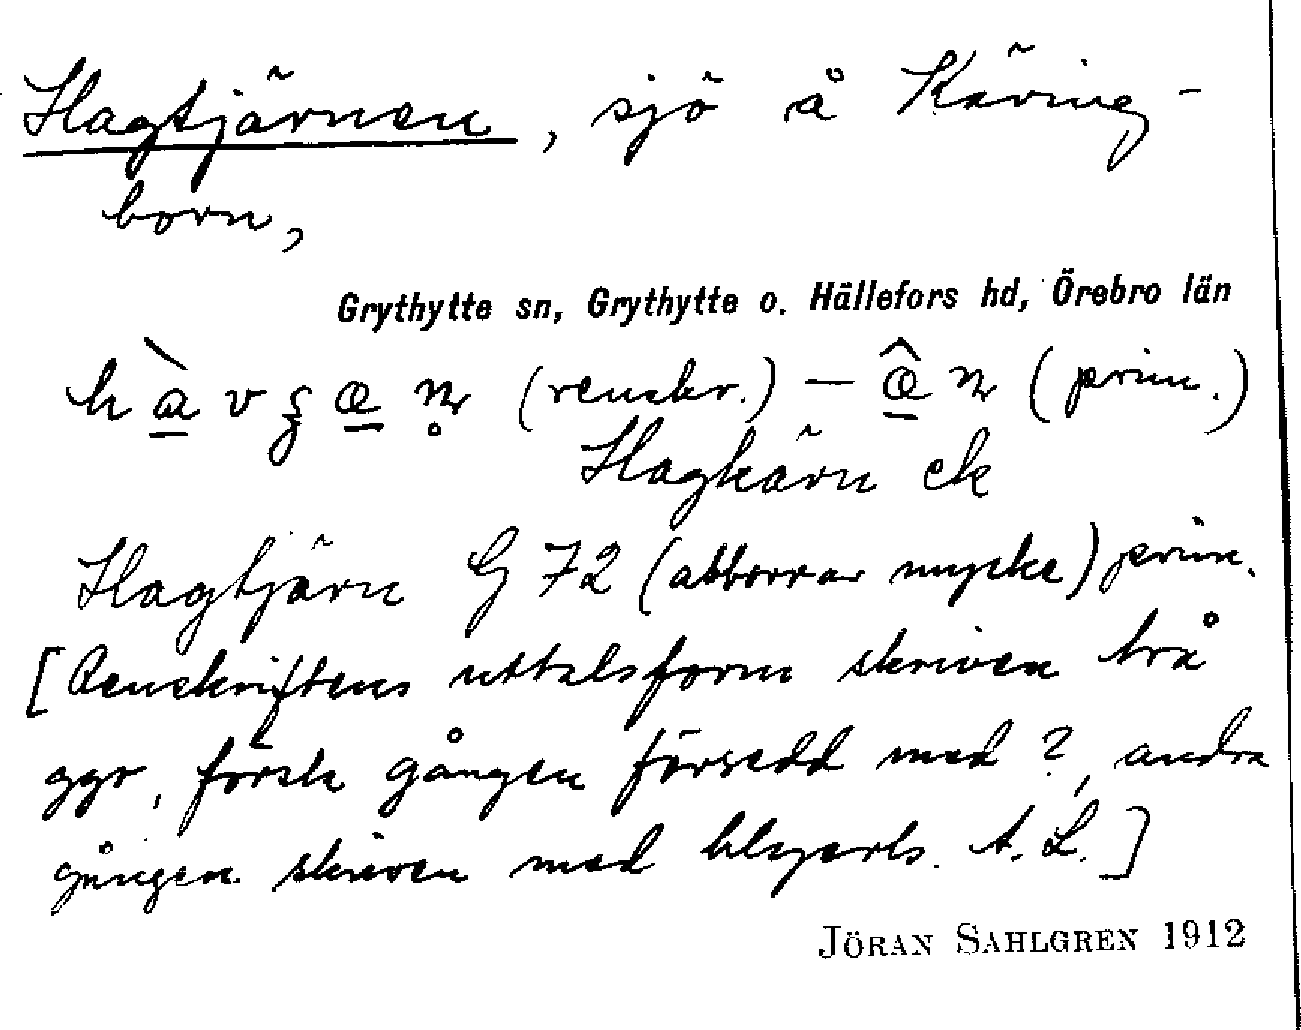 Hagtjärnen, sjö å Käring-
born,
Grythytte sn, Grythytte o. Hällefors hd, Örebro län
(renskr.) — (prim.)
Hagkärn ek
Hagtjärn G 72 (abborrar mycke) prim.
[Renskriftens uttalsform skriven två
ggr, först gången försedd med ?, andra
gången skriven med blyerts. A. L.]
JÖRAN SAHLGREN 1912